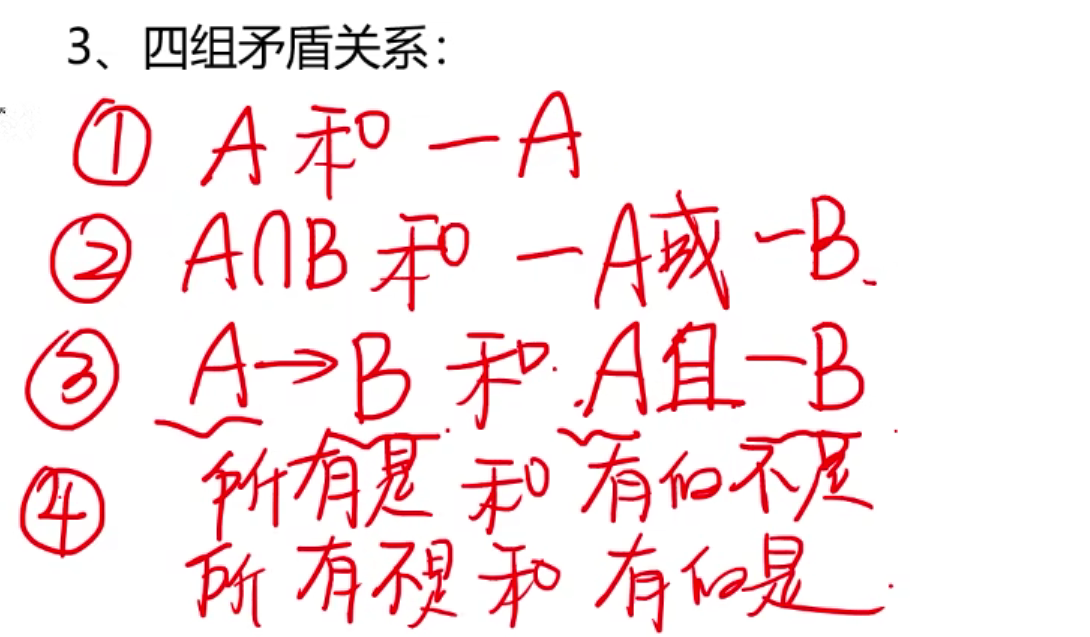 3、四组矛盾关系：
① A 和 －A
② A∩B 和 －A或 －B
③ A→B 和 A且－B
④ 所有是 和 有的不是
所有不是 和 有的是